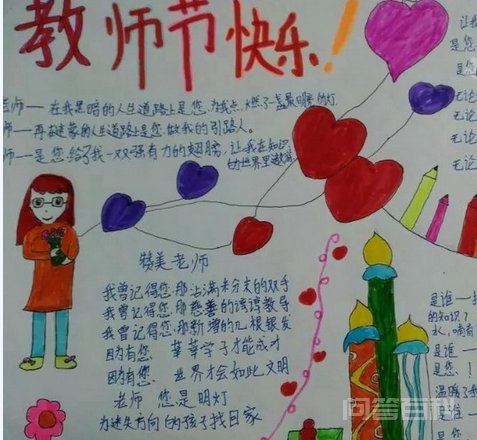 教师节快乐!
老师——在我黑暗的人生道路上是您,为我点燃了一盏最明亮的灯
师——再在迷茫的人生道路上是您,做我的引路人。
师——是您,给了我一双强有力的翅膀,让我在知识
的世界里遨游
让我
是您
是您
无论
无论
无论
无论
赞美老师
我曾记得您,那沾满未分末的双手
我曾记得您,那慈善的谆谆教导
我曾记得您,那新增的几根银发
因为有您, 莘莘学子才能成才
因为有您 世界才会如此文明
老师 您是明灯
为迷失方向的孩子找回家
是谁—
的知识?
水,哺育
是谁—
是您!
温暖了我
是谁
是您
问答百科